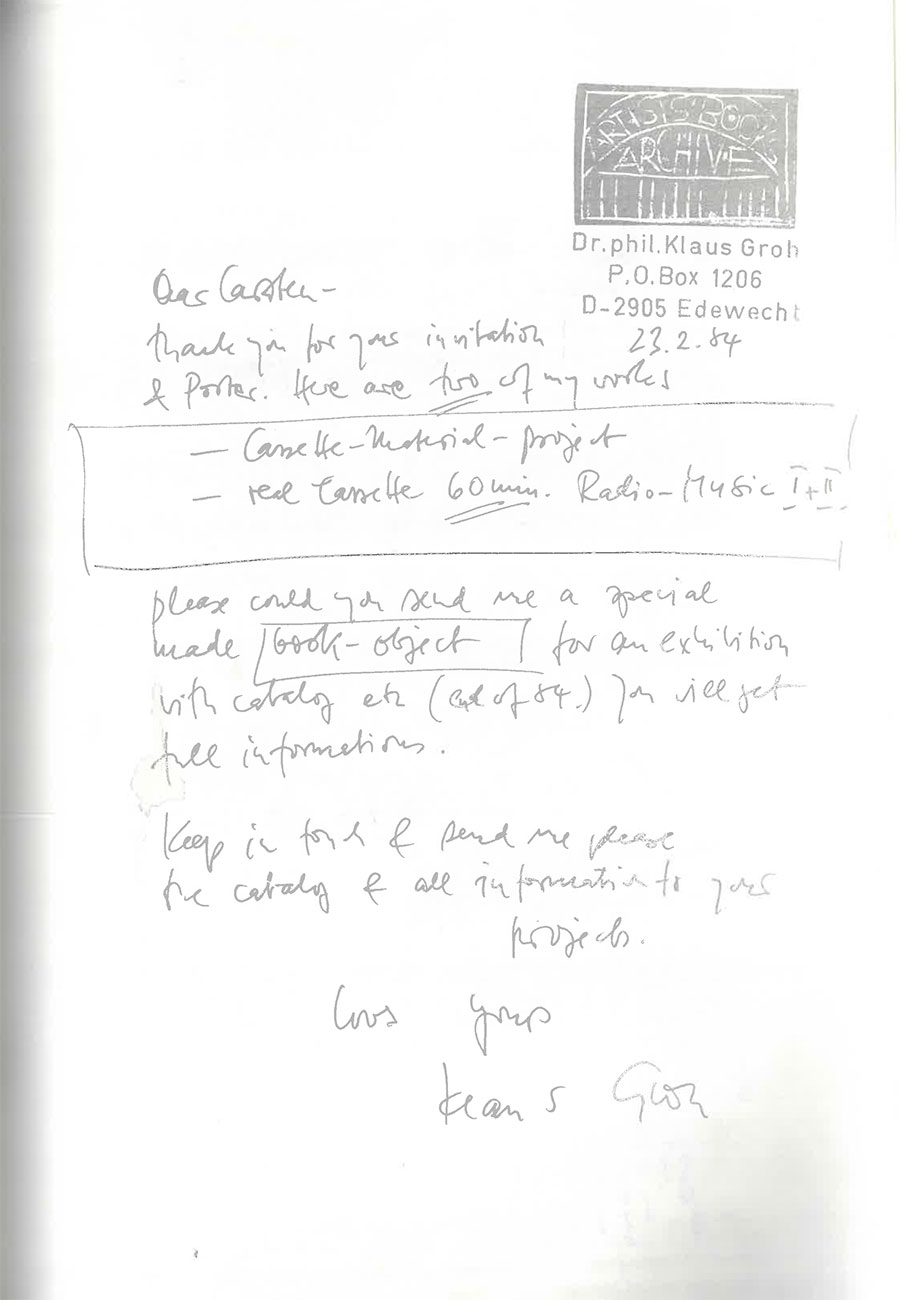 ARTISTS' BOOK
ARCHIVE
Dr.phil.Klaus Groh
P.O.Box 1206
D-2905 Edewecht
23.2.84
Dear Carsten -
thank you for your invitation
& Poster. Here are two of my works
— Cassette-Material-project
— real Cassette 60 min. Radio-Music I+II
please could you send me a special
made book-object for an exhibition
with catalog etc (end of 84.) You will get
full informations.
Keep in touch & send me please
the catalog & all information to your
projects.
yours
Klaus Groh